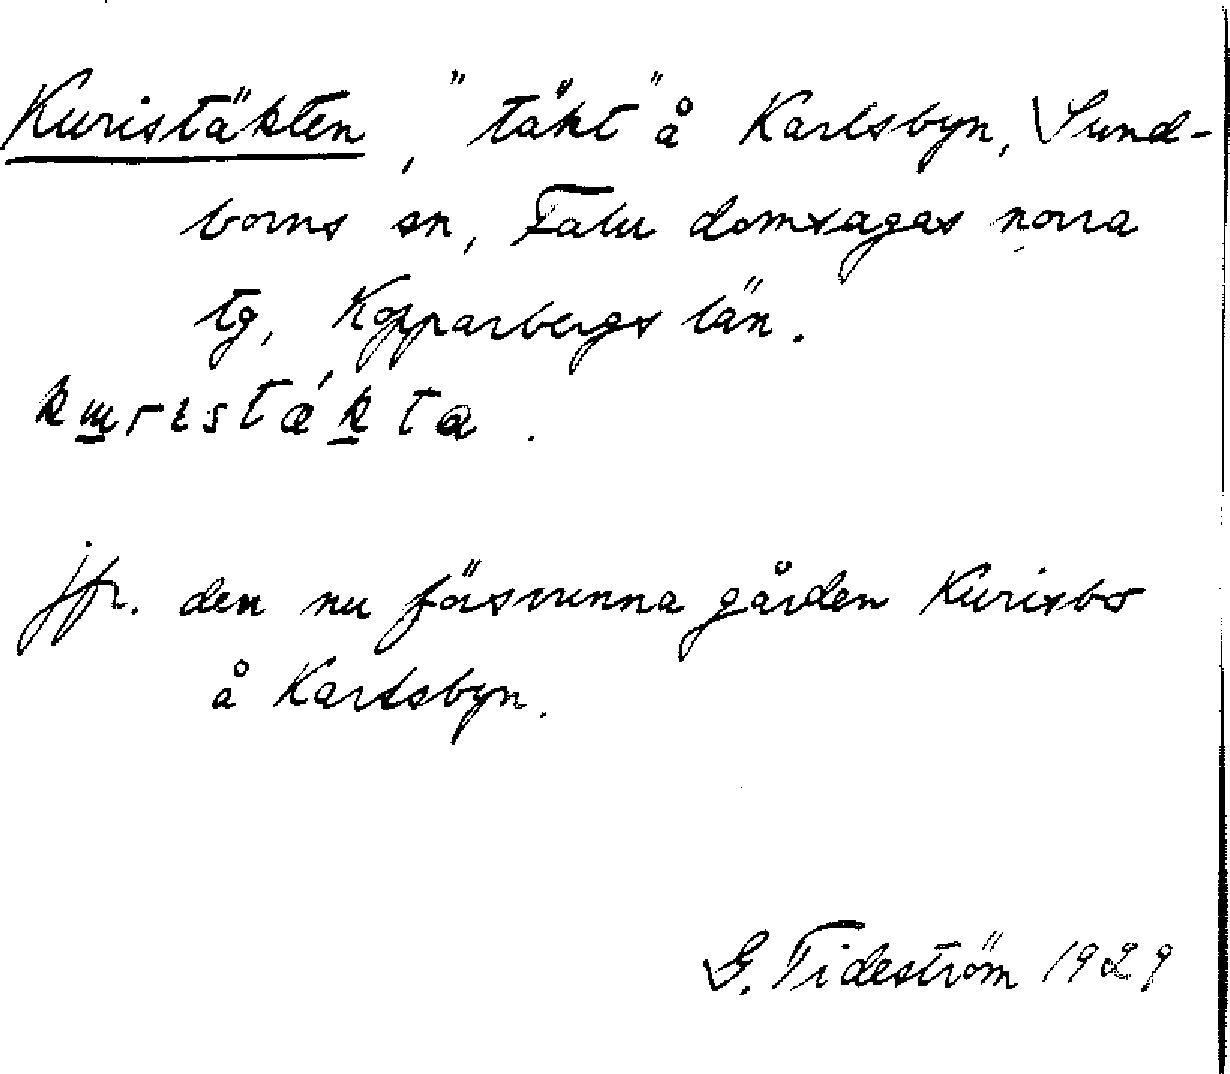 Kuristäkten, "täkt" å Karlsbyn, Sund-
borns sn, Falu domsagas norra
tg, Kopparbergs län.
kɯristǽkta.
jfr. den nu försvunna gården Kurisbo
å Karlsbyn.
G. Tideström 1929